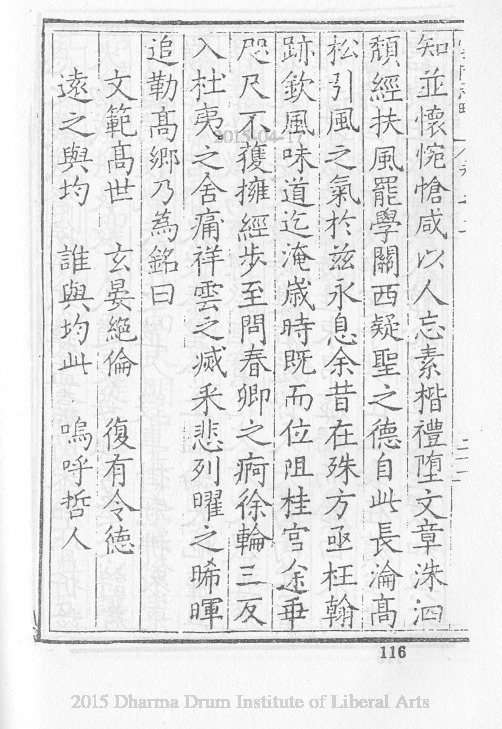 知並懷惋愴咸以人忘素楷禮墮文章洙泗
頹經扶風罷學關西疑聖之德自此長淪髙
松引風之氣於兹永息余昔在殊方亟枉翰
跡欽風味道迄淹歲時既而位阻桂宮途乖
咫尺不獲擁經步至問春卿之痾徐輪三反
入杜夷之舍痛祥雲之滅采悲列曜之晞暉
追勒髙郷乃為銘曰
文範髙世　玄晏絶倫　復有令徳
遠之與均　誰與均此　嗚呼哲人
116
2015-04-17
2015 Dharma Drum Institute of Liberal Arts